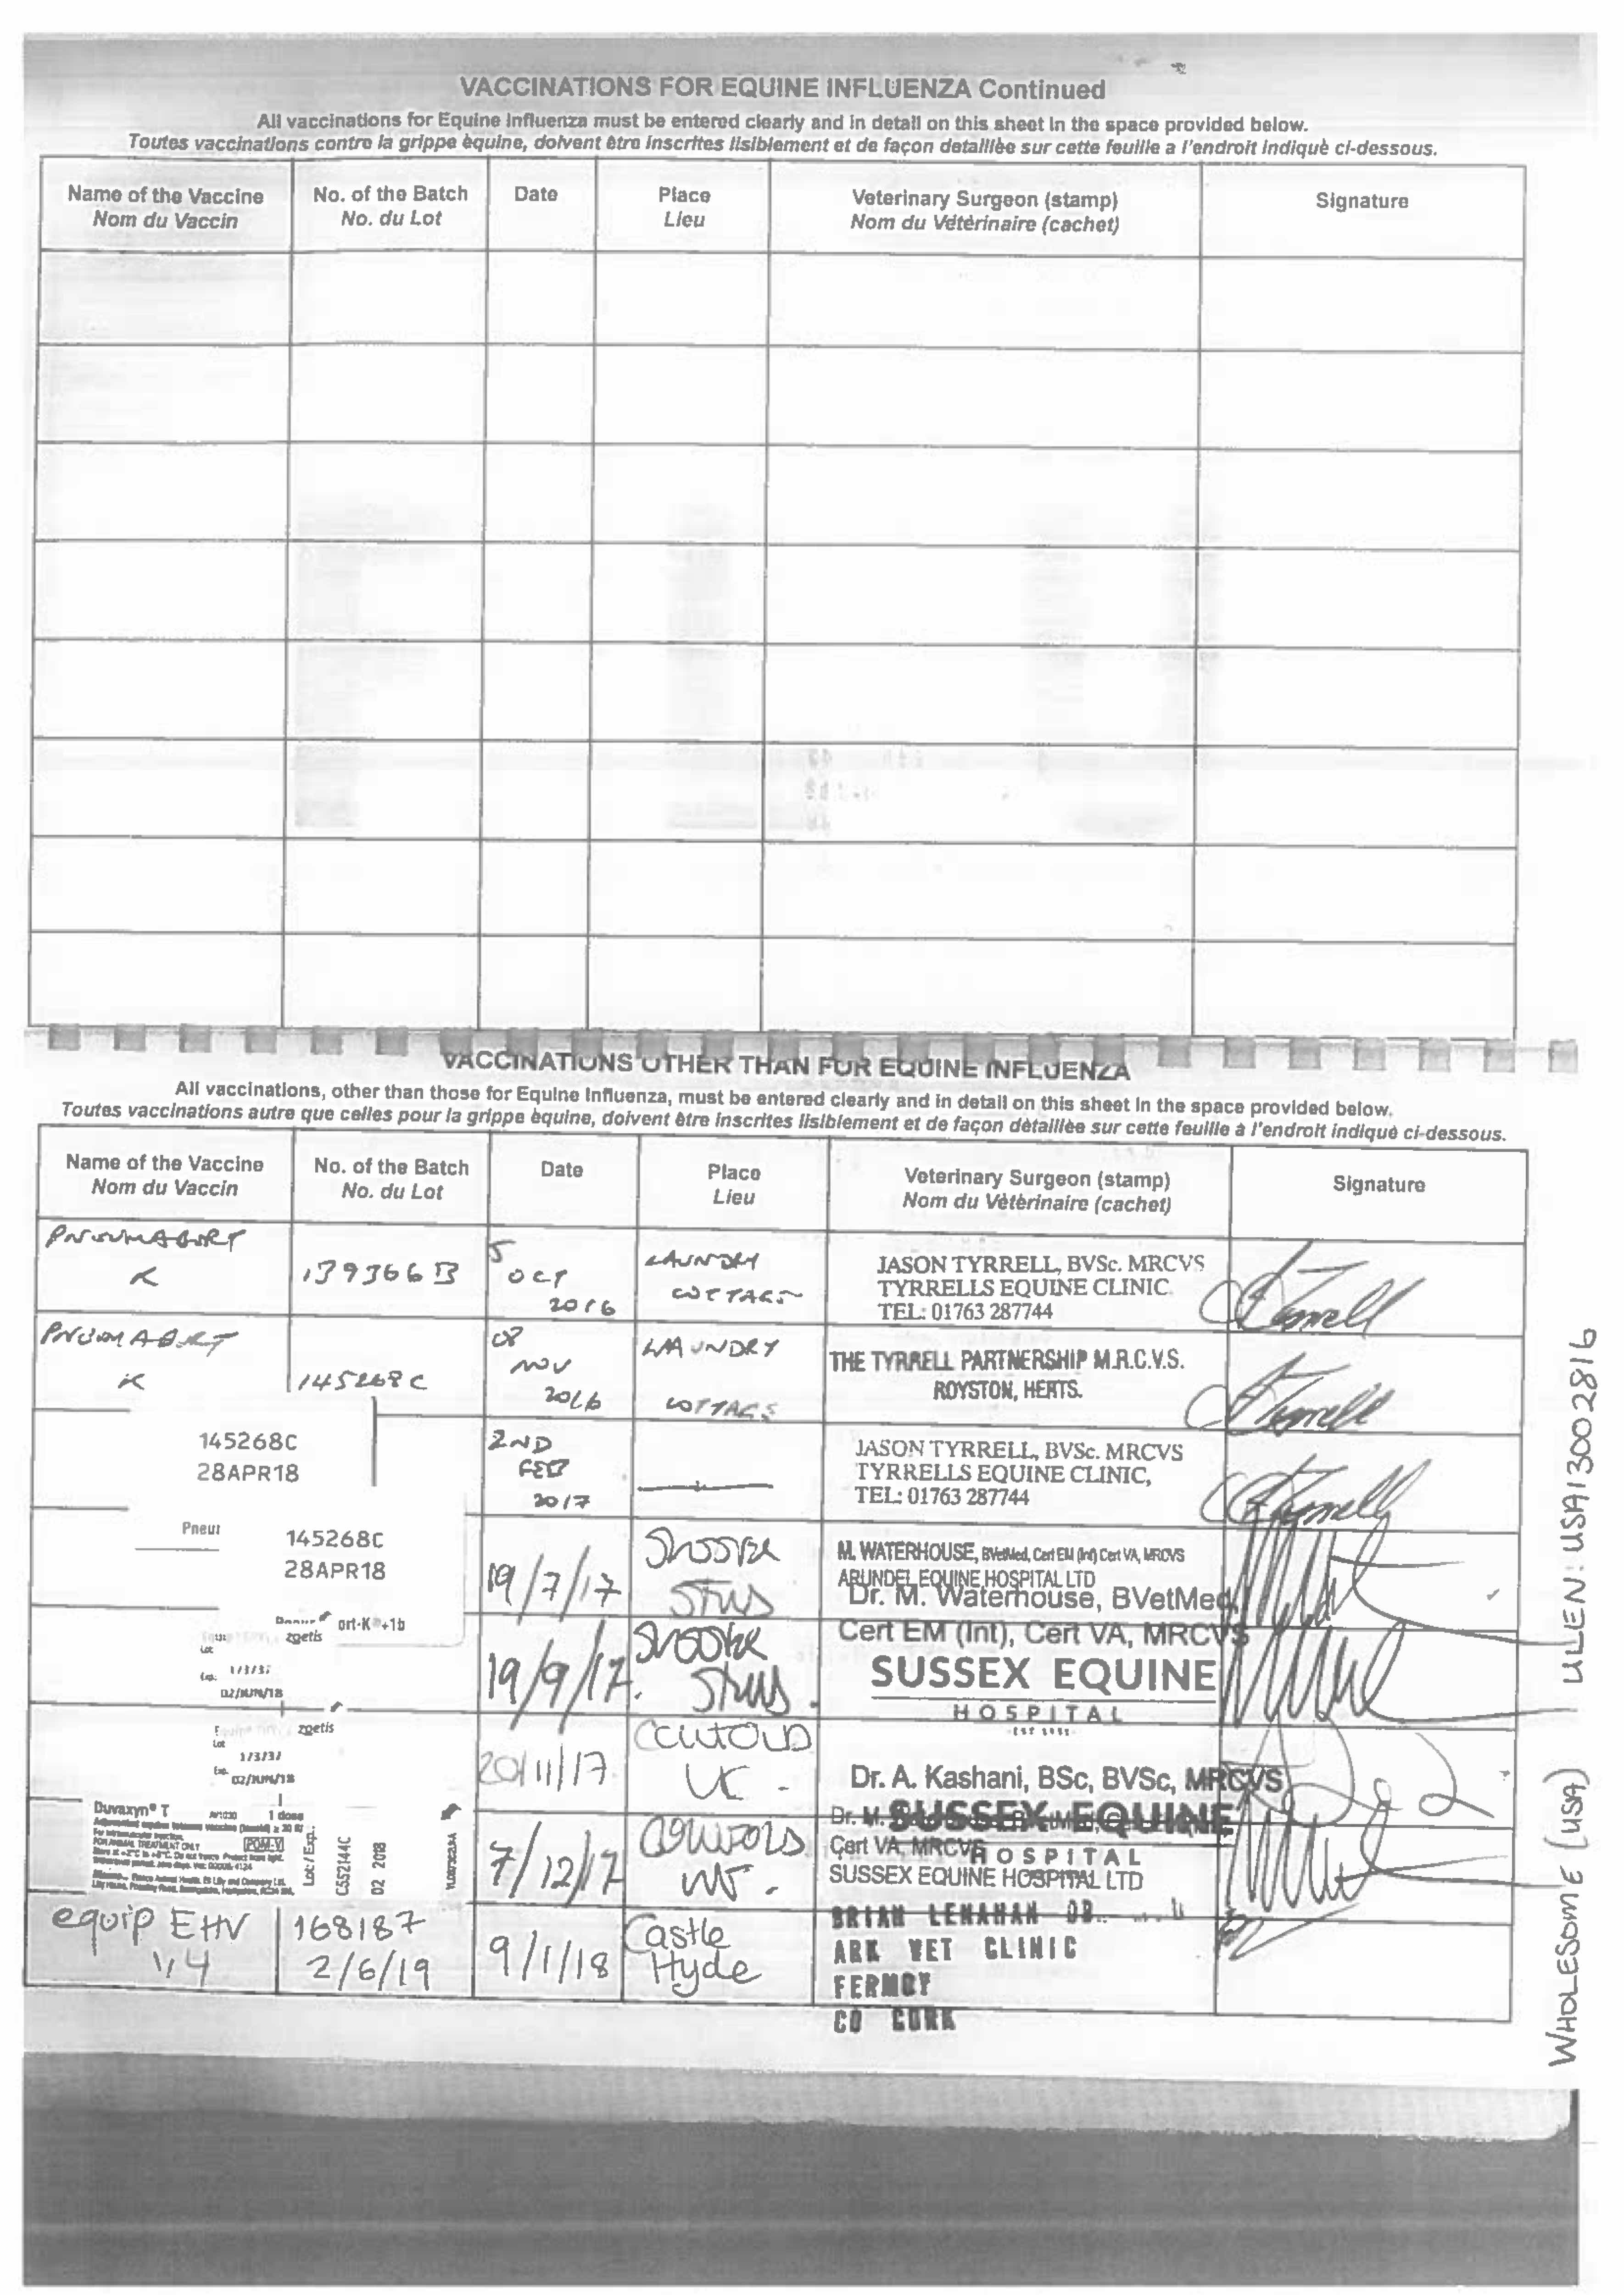 VACCINATIONS FOR EQUINE INFLUENZA Continued
All vaccinations for Equine Influenza must be entered clearly and in detail on this sheet in the space provided below.
Toutes vaccinations contre la grippe èquine, doivent ètre inscrites lisiblement et de façon detaillèe sur cette feuille a l'endroit indiquè ci-dessous.
Name of the Vaccine No. of the Batch Date Place Veterinary Surgeon (stamp) Signature
Nom du Vaccin No. du Lot Lieu Nom du Vètèrinaire (cachet)
VACCINATIONS OTHER THAN FOR EQUINE INFLUENZA
All vaccinations, other than those for Equine Influenza, must be entered clearly and in detail on this sheet in the space provided below.
Toutes vaccinations autre que celles pour la grippe èquine, doivent ètre inscrites lisiblement et de façon dètaillèe sur cette feuille à l'endroit indiquè ci-dessous.
Name of the Vaccine No. of the Batch Date Place Veterinary Surgeon (stamp) Signature
Nom du Vaccin No. du Lot Lieu Nom du Vètèrinaire (cachet)
K 139366B
5 OCT 2016
LAUNDRY COTTAGE
JASON TYRRELL, BVSc. MRCVS
TYRRELLS EQUINE CLINIC.
TEL: 01763 287744
K 145268C
08 NOV 2016
LAUNDRY COTTAGE
THE TYRRELL PARTNERSHIP M.R.C.V.S.
ROYSTON, HERTS.
145268C
28APR18
2ND FEB 2017
JASON TYRRELL, BVSc. MRCVS
TYRRELLS EQUINE CLINIC,
TEL: 01763 287744
145268C
28APR18
ort-K +1b
19/7/17
M. WATERHOUSE, BVetMed, Cert EM (Int) Cert VA, MRCVS
ARUNDEL EQUINE HOSPITAL LTD
Dr. M. Waterhouse, BVetMed
Cert EM (Int), Cert VA, MRCVS
zoetis
02/JUN/18
19/9/17.
SUSSEX EQUINE
HOSPITAL
zoetis
02/JUN/18
20/11/17
UK.
Dr. A. Kashani, BSc, BVSc, MRCVS
SUSSEX EQUINE
HOSPITAL
Duvaxyn® T 1 dose
FOR ANIMAL TREATMENT ONLY
POM-V
Lot / Exp.:
C652144C
02 2018
7/12/17
Cert VA, MRCVS
SUSSEX EQUINE HOSPITAL LTD
equip EHV 1,4
168187
2/6/19
9/1/18
Castle Hyde
BRIAN LENAHAN
ARK VET CLINIC
FERMOY
CO CORK
WHOLESOME (USA) UELN: USA13002816